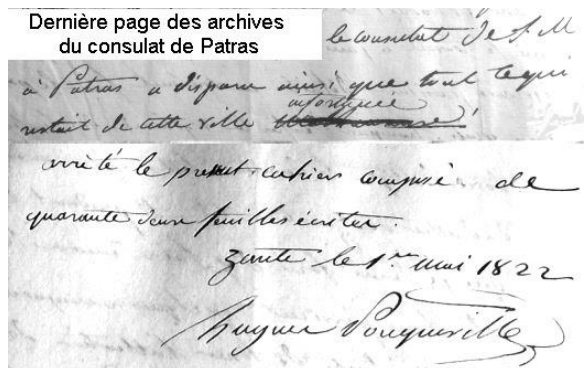 Dernière page des archives
du consulat de Patras
le consulat de S. M
à Patras a disparu ainsi que tout ce qui
infortunée
restait de cette ville
arrêté le présent cahiers composé de
quarante deux feuilles écrites.
Zante le 1er mai 1822
hugues Pouqueville